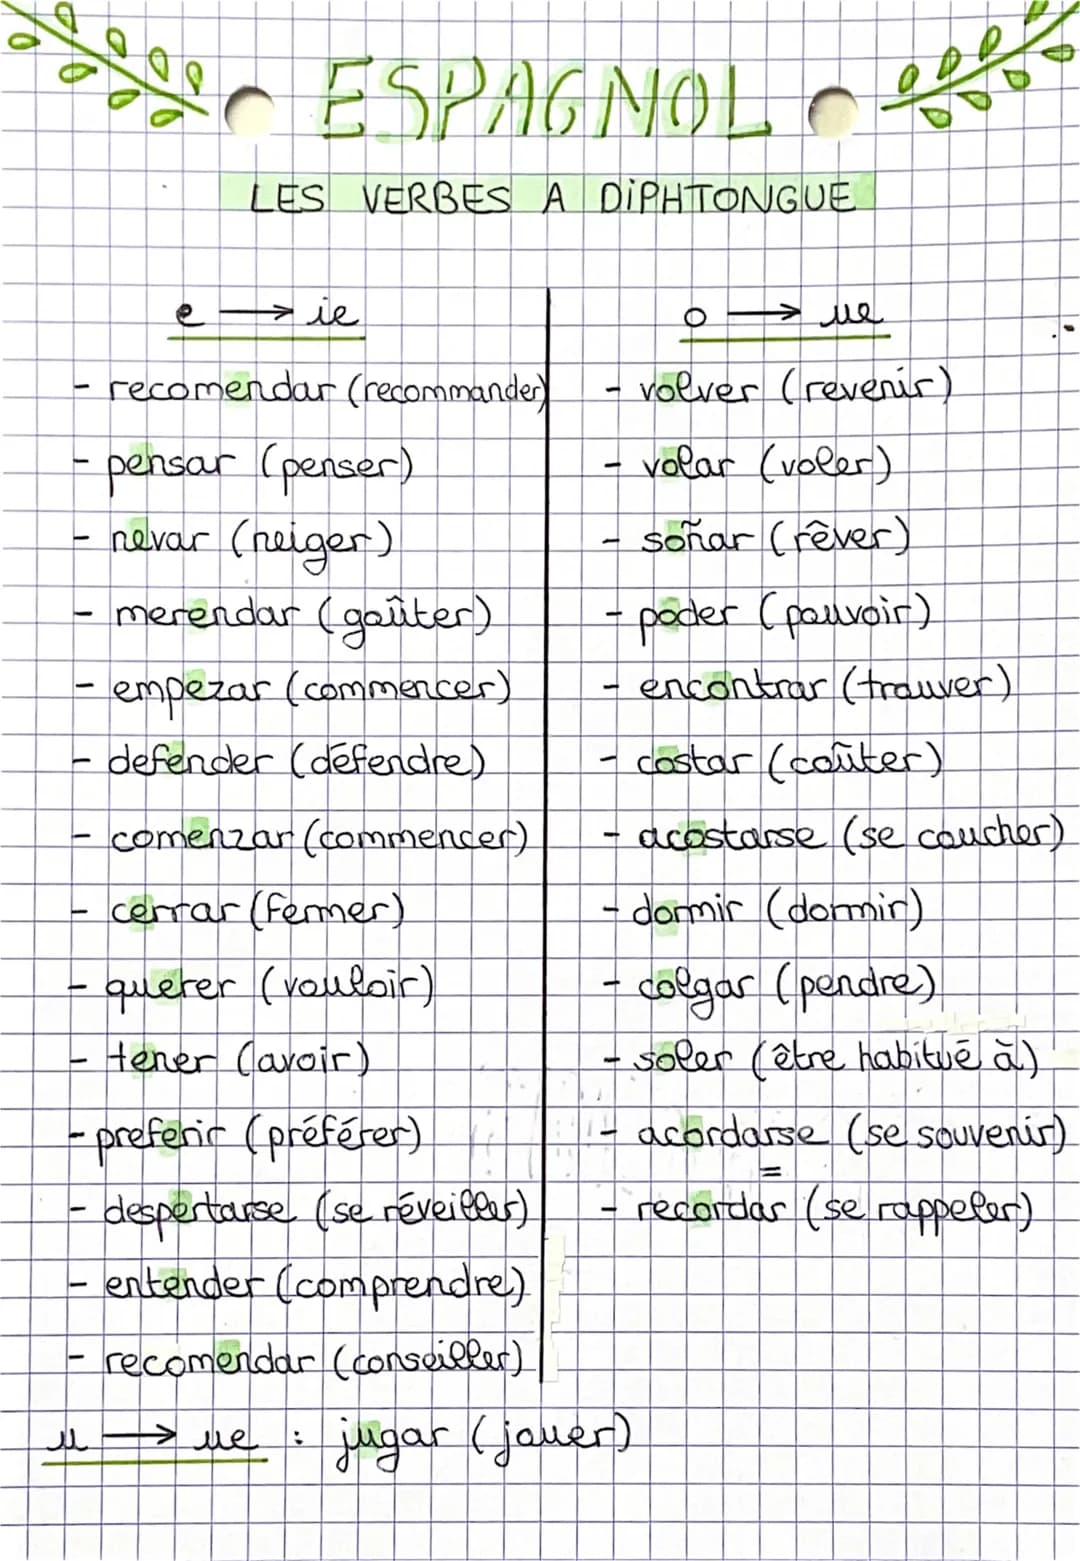 ESPAGNOL
LES VERBES A DiPHTONGUE
e → ie
- recomendar (recommander)
- pensar (penser)
- nevar (neiger)
- merendar (goûter)
- empezar (commencer)
- defender (défendre)
- comenzar (commencer)
- cerrar (fermer)
- querer (vouloir)
- tener (avoir)
- preferir (préférer)
- despertarse (se réveiller)
- entender (comprendre)
- recomendar (conseiller)
o → ue
- volver (revenir)
- volar (voler)
- soñar (rêver)
- poder (pouvoir)
- encontrar (trouver)
- costar (coûter)
- acostarse (se coucher)
- dormir (dormir)
- colgar (pendre)
- soler (être habitué à)
- acordarse (se souvenir)
=
- recordar (se rappeler)
u → ue : jugar (jouer)